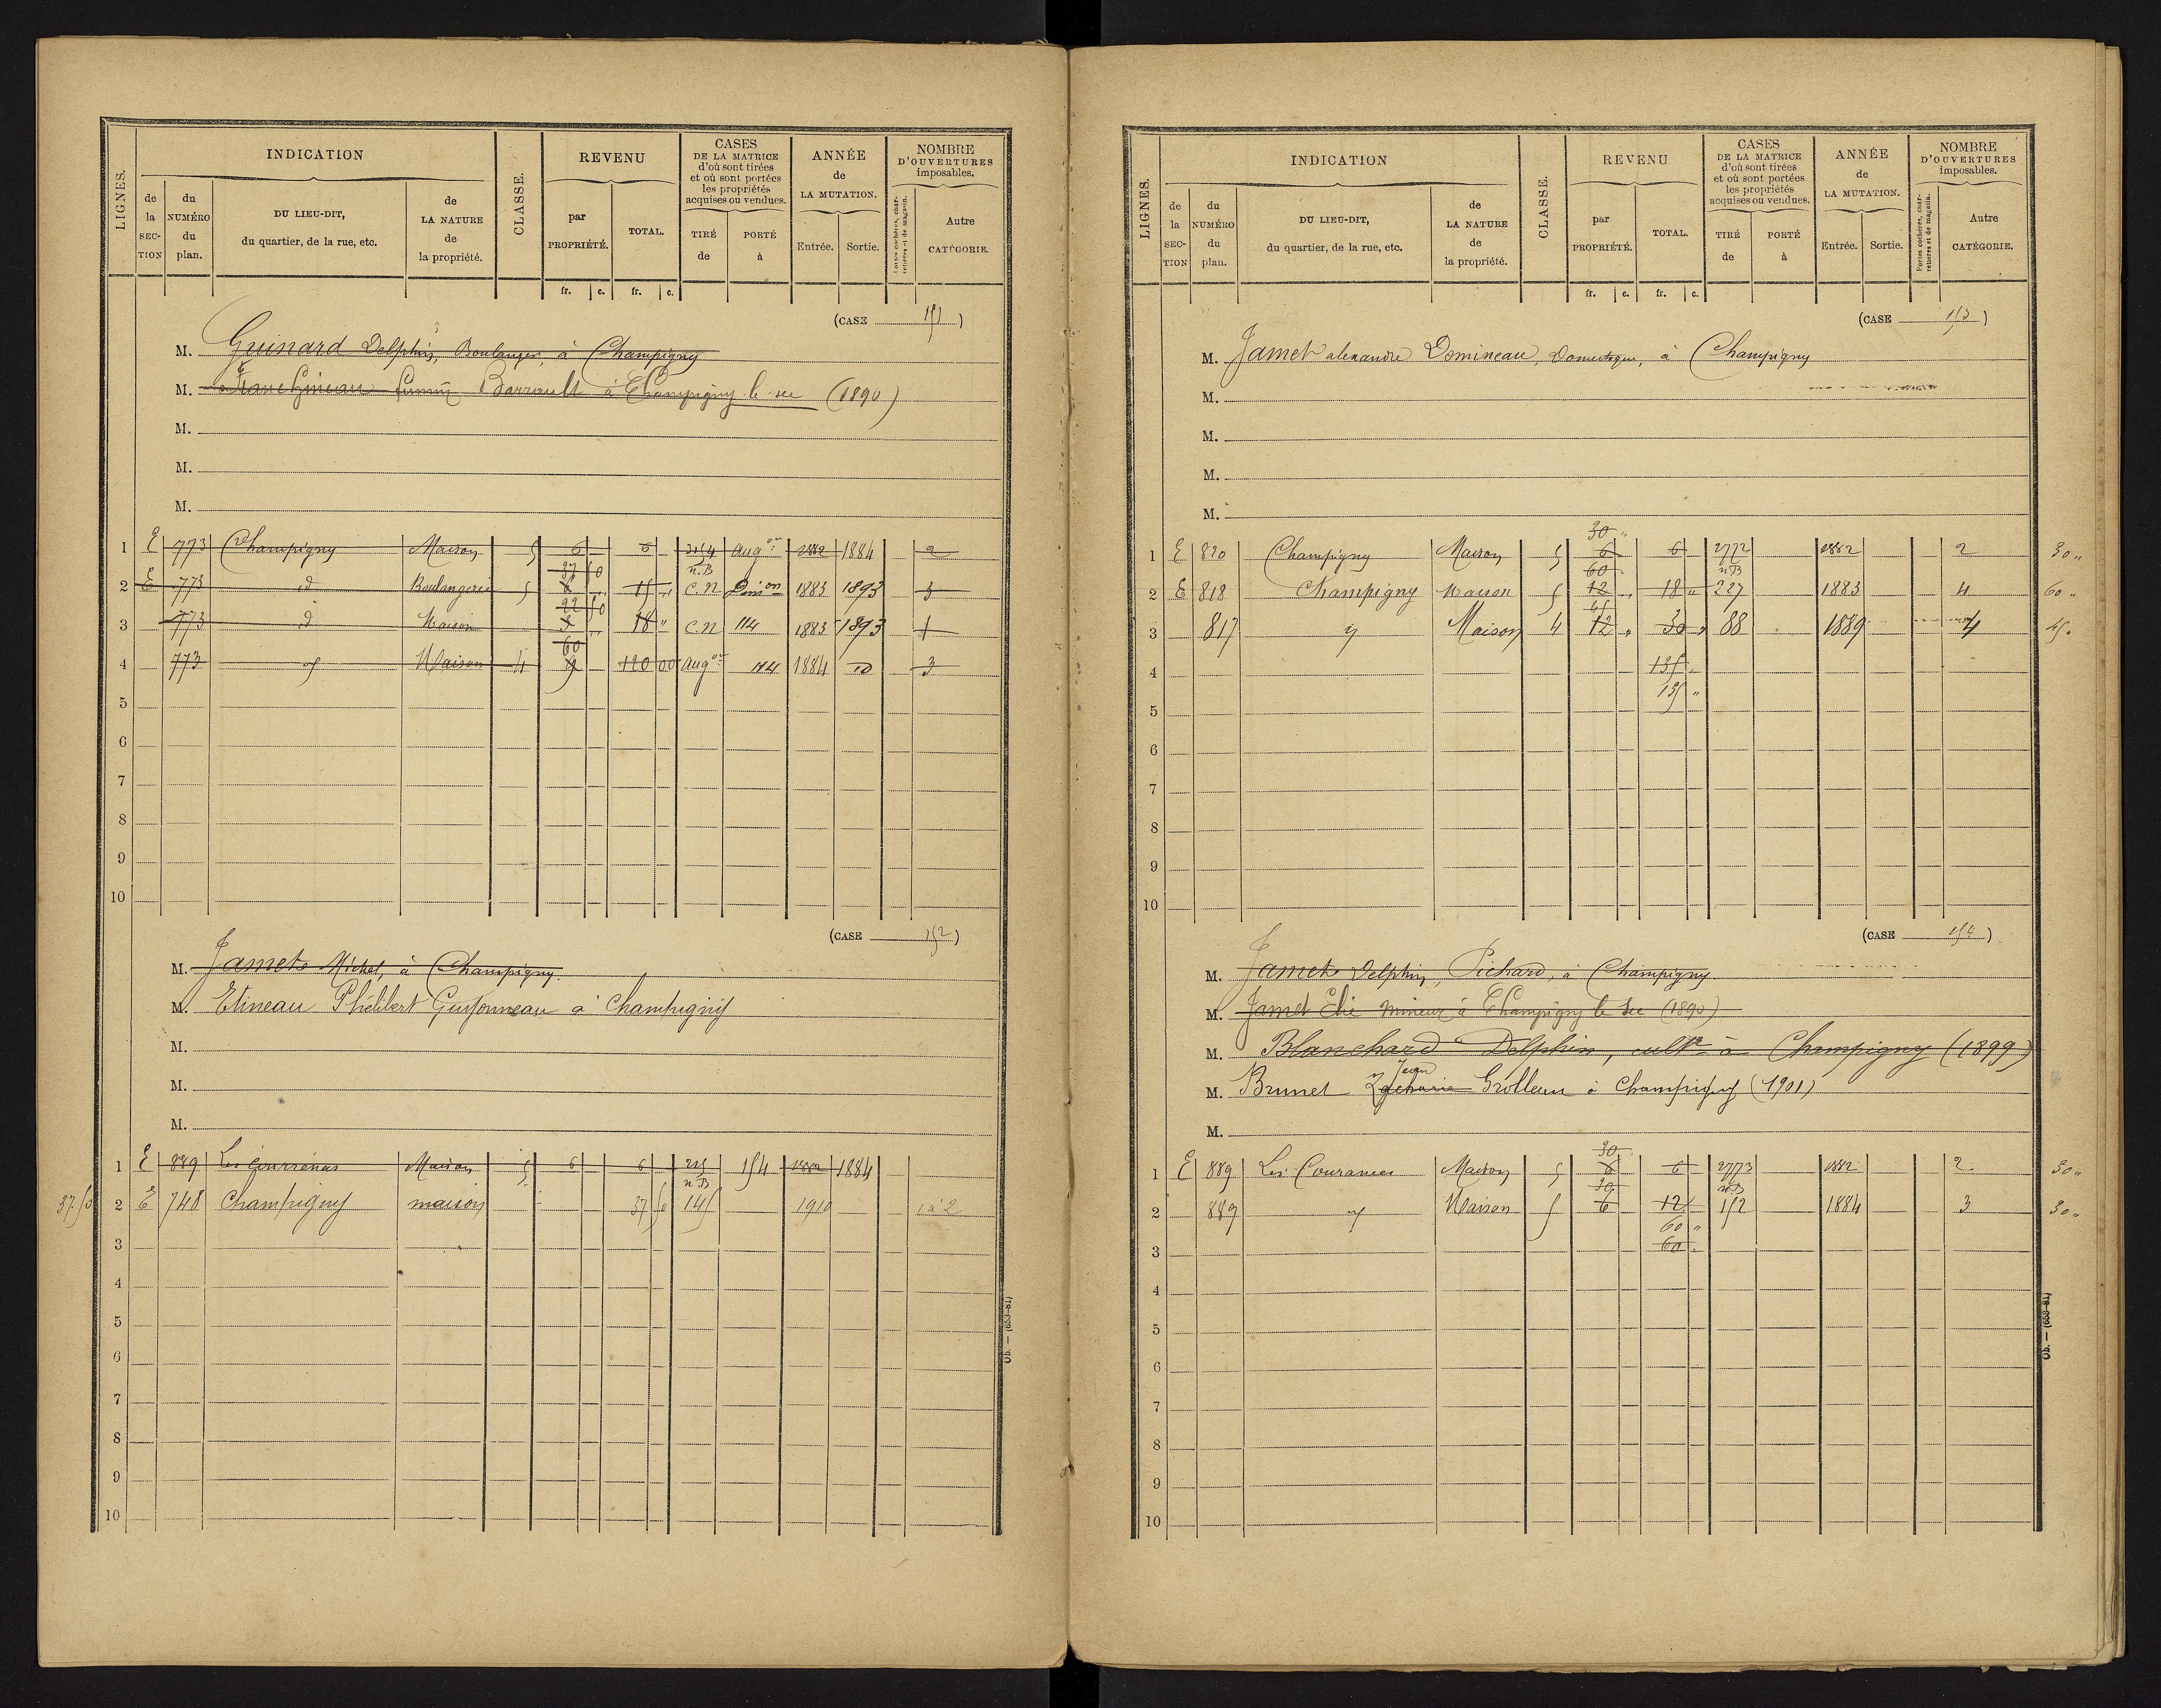 LIGNES. INDICATION CLASSE. REVENU CASES DE LA MATRICE d'où sont tirées et où sont portées les propriétés acquises ou vendues. ANNÉE de LA MUTATION. NOMBRE D'OUVERTURES imposables.
de la SECTION du NUMÉRO du plan. DU LIEU-DIT, du quartier, de la rue, etc. de LA NATURE de la propriété. par PROPRIÉTÉ. TOTAL. TIRÉ de PORTÉ à Entrée. Sortie. Portes cochères, charretières et de magasin. Autre CATÉGORIE.
fr. c. fr. c.
(CASE 151)
M. Guinard Delphin, Boulanger, à Champigny
M. Barrault à Champigny le sec (1890)
M.
M.
M.
1 E 773 Champigny Maison 5 6 6 Aug on 1882 1884 2
37 50 n.B
2 E 773 d Boulangerie 5 15 " C.N Dim on 1883 1893 3
22 50
3 773 d Maison 3 " 18 " C.N 114 1883 1893 1
60
4 773 Maison 4 9 120 00 Aug on 114 1884 3
5
6
7
8
9
10
(CASE 152)
M. Jamet Michel, à Champigny
M. Etineau Philibert Guyonneau à Champigny
M.
M.
M.
1 E 889 Maison 5 6 6 215 154 1882 1884
n.B
37.50 2 E 748 Champigny maison 37 50 145 1910 1 à 2
3
4
5
6
7
8
9
10
Ob. — (683-81)
LIGNES. INDICATION CLASSE. REVENU CASES DE LA MATRICE d'où sont tirées et où sont portées les propriétés acquises ou vendues. ANNÉE de LA MUTATION. NOMBRE D'OUVERTURES imposables.
de la SECTION du NUMÉRO du plan. DU LIEU-DIT, du quartier, de la rue, etc. de LA NATURE de la propriété. par PROPRIÉTÉ. TOTAL. TIRÉ de PORTÉ à Entrée. Sortie. Portes cochères, charretières et de magasin. Autre CATÉGORIE.
fr. c. fr. c.
(CASE 153)
M. Jamet alexandre Domineau, Domestique, à Champigny
M.
M.
M.
M.
30 "
1 E 820 Champigny Maison 5 6 6 2772 1882 2 30 "
60 n.B
2 E 818 Champigny Maison 5 12 " 18 " 227 1883 4 60 "
45
3 817 Maison 4 12 " 30 " 88 1889 4 45 "
4 135 "
135 "
5
6
7
8
9
10
(CASE 154)
M. Jamet Delphin, Pichard, à Champigny
M. Jamet Elie mineur à Champigny le Sec (1890)
M. Blanchard Delphin, cultr à Champigny (1899)
Jean
M. Brunet Zacharie Grolleau à Champigny (1901)
M.
30
1 E 889 Les Courances Maison 5 6 6 2773 1882 2 30 "
30 n.B
2 889 Maison 5 6 12 152 1884 3 30 "
60 "
3 60 "
4
5
6
7
8
9
10
Ob. — (683-81)